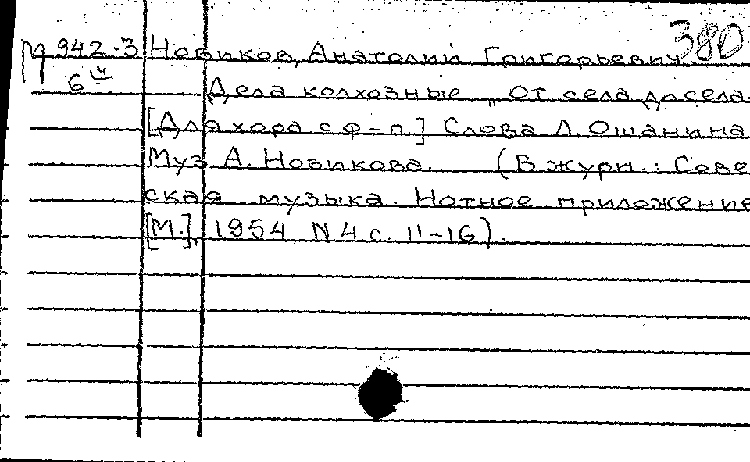 942-3 Новиков, Анатолий Григорьевич 380
6ч
Дела колхозные „От села до села
[Для хора с ф-п.] Слова Л. Ошанина
Муз А. Новикова. (В журн.: Сове
ская музыка. Нотное приложение
[М.], 1954 N 4 с. 11-16).